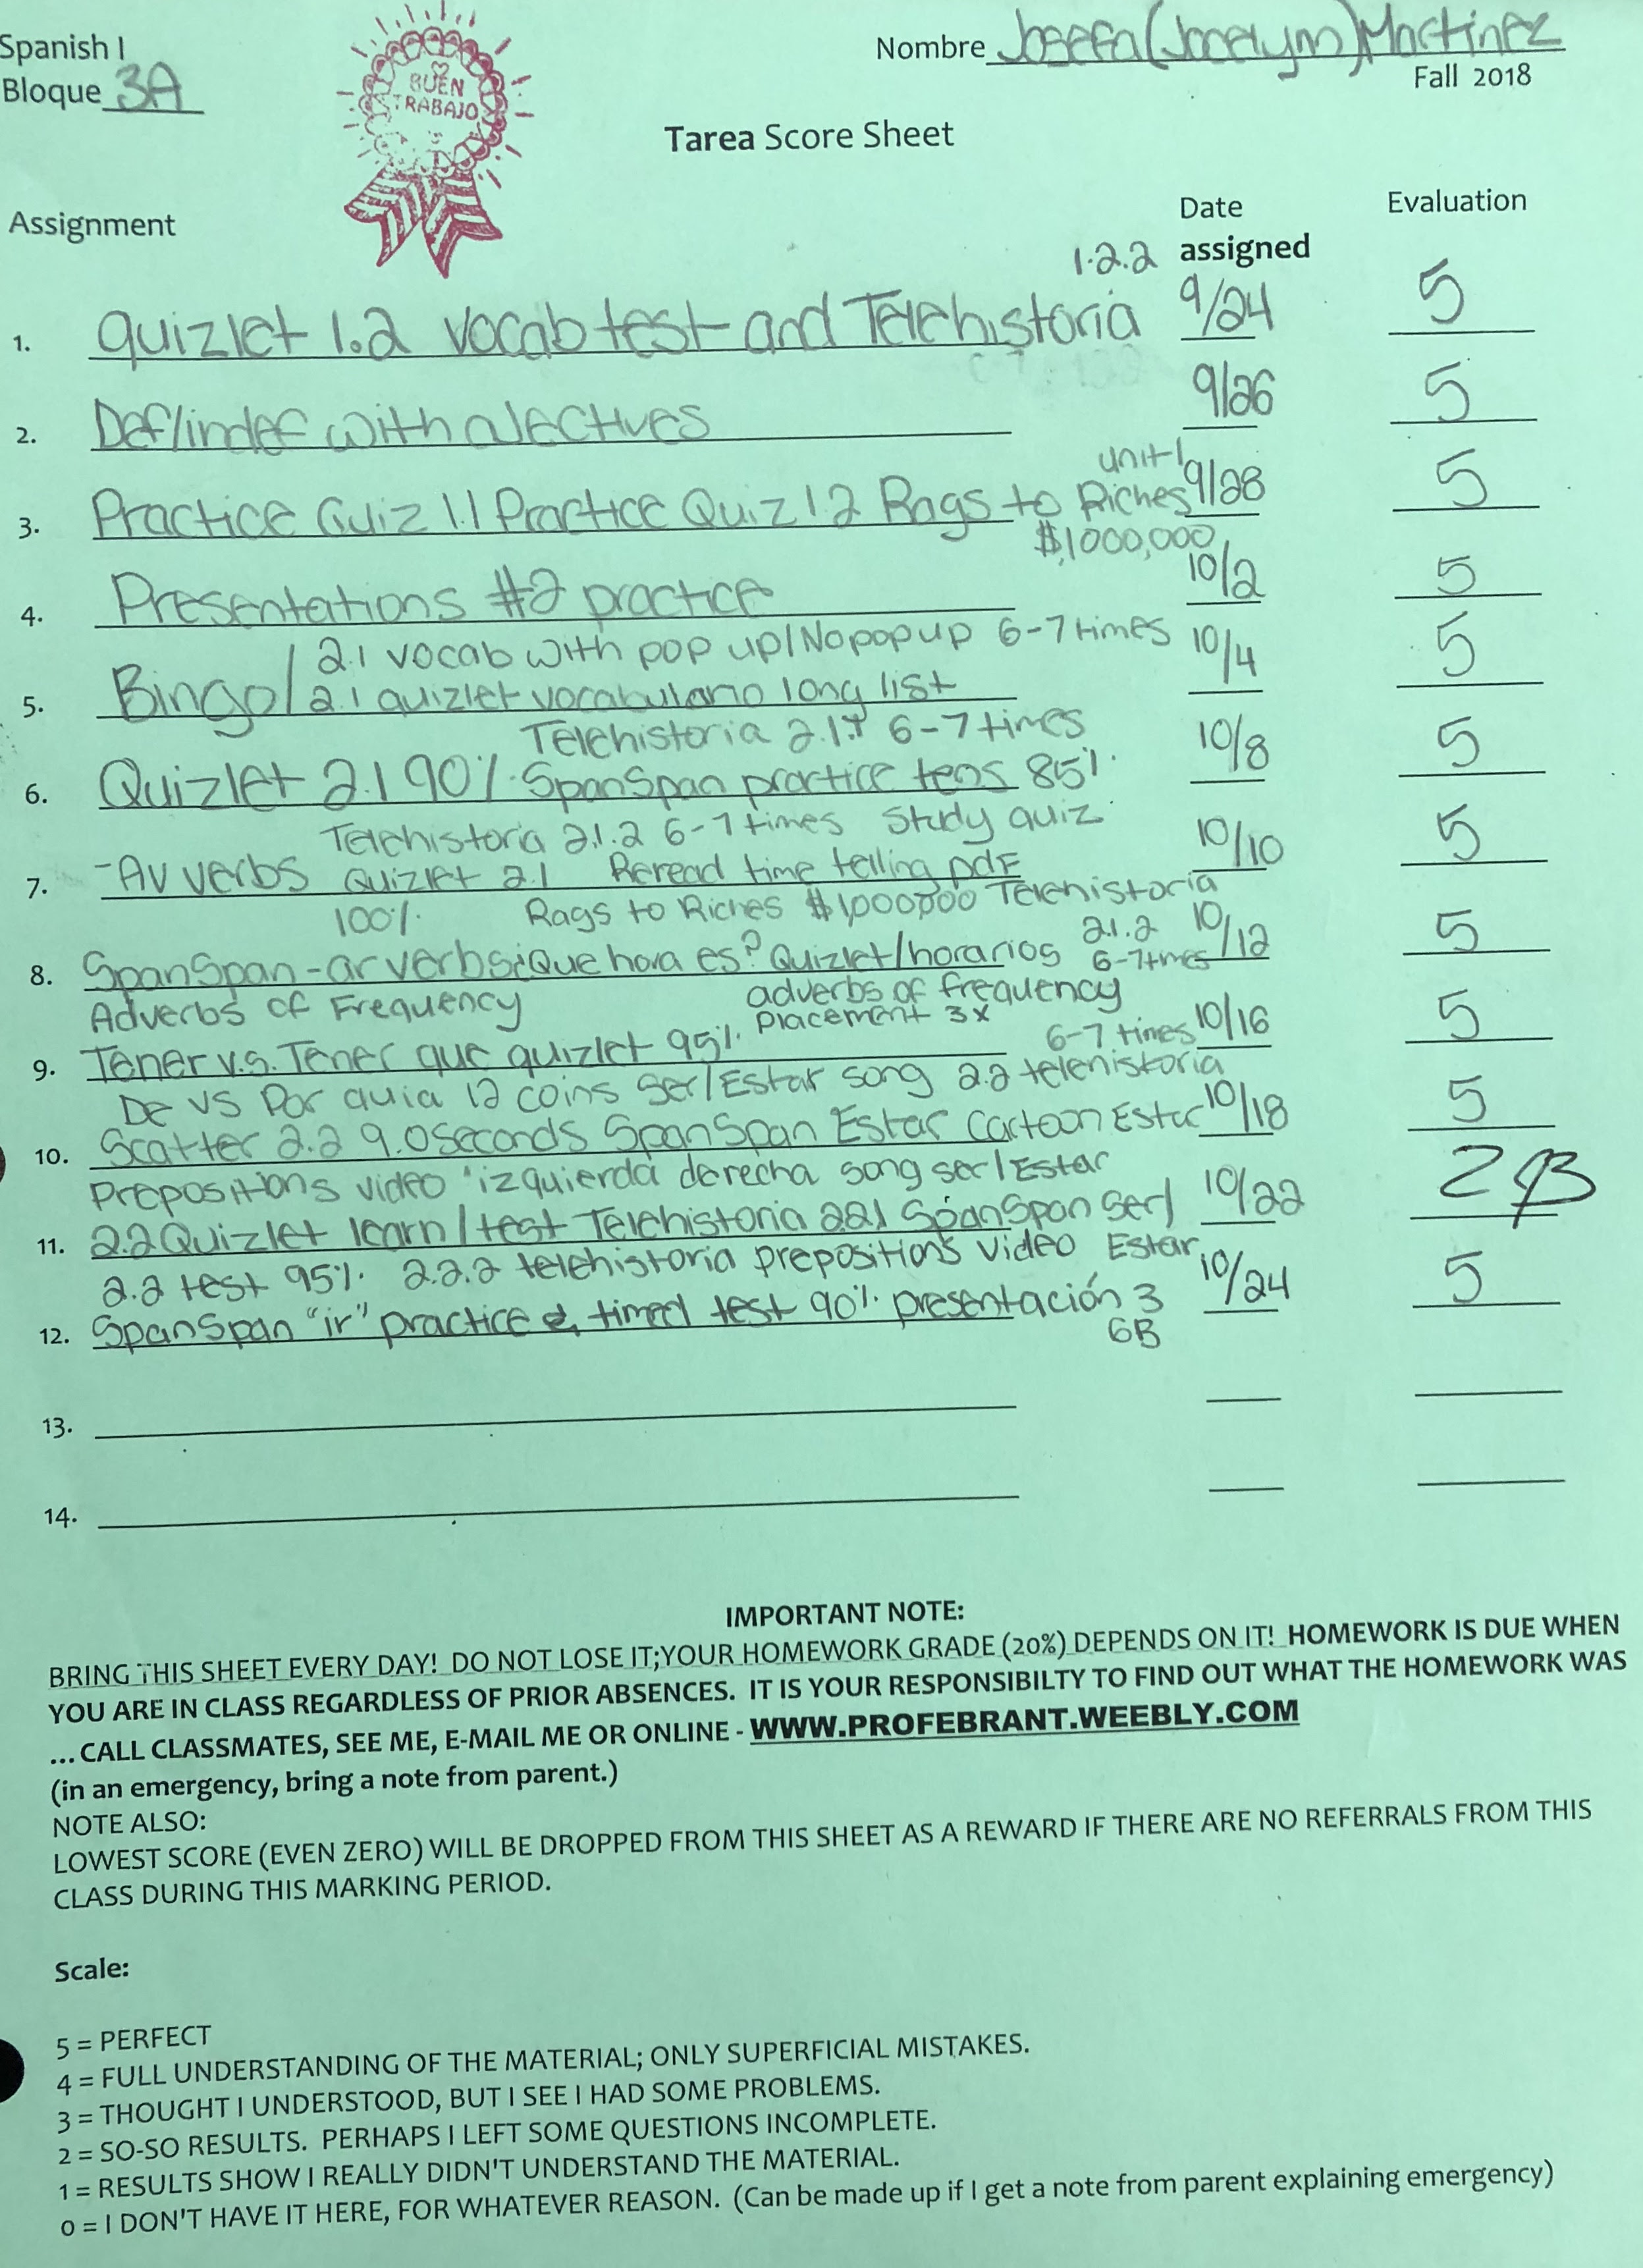 Spanish I
Nombre Josefa (Jocelynn) Martinez
Bloque 3A
Fall 2018
BUEN
TRABAJO
Tarea Score Sheet
Assignment
Date
assigned
Evaluation
1.2.2
1. quizlet 1.2 vocab test and Telehistoria 9/24 5
2. Def/indef with aJectives 9/26 5
unit 1
3. Practice Quiz 1.1 Practice Quiz 1.2 Rags to Riches 9/28 5
$1,000,000
4. Presentations #2 practice 10/2 5
2.1 vocab with pop up/No pop up 6-7 times
5. Bingo/2.1 quizlet vocabulario long list 10/4 5
Telehistoria 2.1.1 6-7 times
6. Quizlet 2.1 90% SpanSpan practice 85% 10/8 5
Telehistoria 2.1.2 6-7 times Study quiz
7. verbs Quizlet 2.1 Reread time telling pdf 10/10 5
100% Rags to Riches $1,000,000 Telehistoria
2.1.2
8. SpanSpan -ar verbs ¿Que hora es? Quizlet/horarios 6-7 times 10/12 5
Adverbs of Frequency adverbs of frequency
Placement 3x
9. Tener v.s. Tener que quizlet 95% 6-7 times 10/16 5
De vs Por 12 coins Ser/Estar song 2.2 telehistoria
10. Scatter 2.2 9.0 seconds SpanSpan Estar Cartoon 10/18 5
Prepositions video "izquierda derecha song ser/Estar
11. 2.2 Quizlet learn/test Telehistoria 2.2.1 SpanSpan Ser/ 10/22 2
Estar
2.2 test 95% 2.2.2 telehistoria prepositions video
12. SpanSpan "ir" practice & timed test 90% presentación 3 10/24 5
6B
13.
14.
IMPORTANT NOTE:
BRING THIS SHEET EVERY DAY! DO NOT LOSE IT;YOUR HOMEWORK GRADE (20%) DEPENDS ON IT! HOMEWORK IS DUE WHEN
YOU ARE IN CLASS REGARDLESS OF PRIOR ABSENCES. IT IS YOUR RESPONSIBILTY TO FIND OUT WHAT THE HOMEWORK WAS
...CALL CLASSMATES, SEE ME, E-MAIL ME OR ONLINE - WWW.PROFEBRANT.WEEBLY.COM
(in an emergency, bring a note from parent.)
NOTE ALSO:
LOWEST SCORE (EVEN ZERO) WILL BE DROPPED FROM THIS SHEET AS A REWARD IF THERE ARE NO REFERRALS FROM THIS
CLASS DURING THIS MARKING PERIOD.
Scale:
5 = PERFECT
4 = FULL UNDERSTANDING OF THE MATERIAL; ONLY SUPERFICIAL MISTAKES.
3 = THOUGHT I UNDERSTOOD, BUT I SEE I HAD SOME PROBLEMS.
2 = SO-SO RESULTS. PERHAPS I LEFT SOME QUESTIONS INCOMPLETE.
1 = RESULTS SHOW I REALLY DIDN'T UNDERSTAND THE MATERIAL.
0 = I DON'T HAVE IT HERE, FOR WHATEVER REASON. (Can be made up if I get a note from parent explaining emergency)